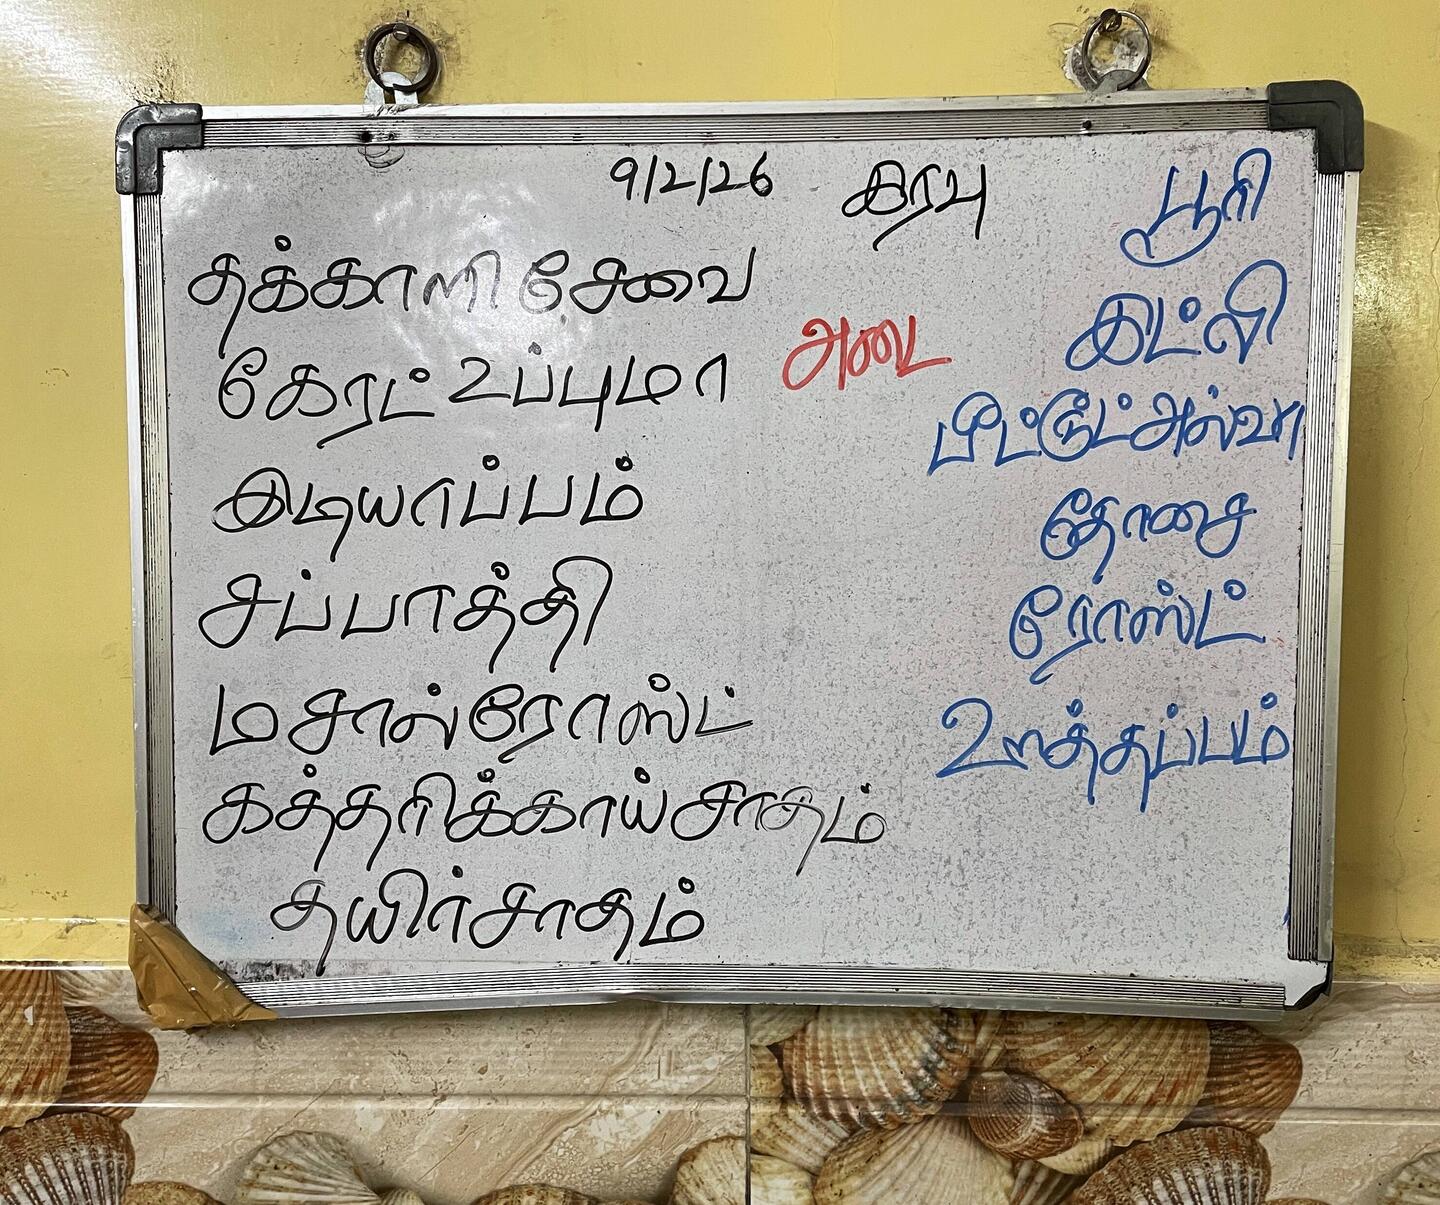 9/2/26 இரவு
தக்காளி சேவை
கேரட் உப்புமா
இடியாப்பம்
சப்பாத்தி
மசால்ரோஸ்ட்
கத்தரிக்காய்சாதம்
தயிர்சாதம்
அடை
பூரி
இட்லி
பீட்ரூட்அல்வா
தோசை
ரோஸ்ட்
ஊத்தப்பம்